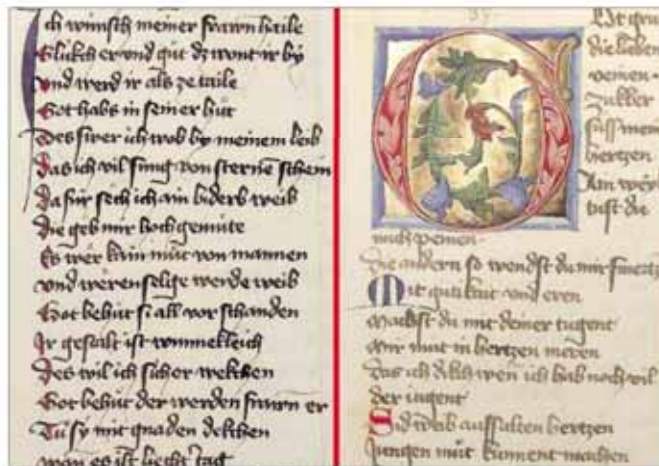 ich wünsch meiner frawn haile
Glükch er vnd güt dz wont ir by
vnd werd ir als ze taile
Got habs in seiner hüt
Des swer ich wol by meinem leib
das ich vil sung von sterne schein
da für sech ich ain biderb weib
die geb mir hochgemüte
Es wer kain müt von mannen
vnd weren selige werde weib
Got behüt si all vor schanden
Ir gestalt ist wunnekleich
Des wil ich sicher wekchen
Got behüt der werden frawn er
Tu sy mit gnaden dekchen
wan es ist liecht tag
die lieben
Zukker
süss mein
hertzen
Ain
tust du
mich
Die andern so wendst du mir smertz
Mit gutikait vnd eren
Machst du mit deiner tugent
Mir mut in hertzen meren
Das ich dikch wen ich hab noch vil
der iugent
Sid weib auff salten hertzen
Jungen müt kunnent machen